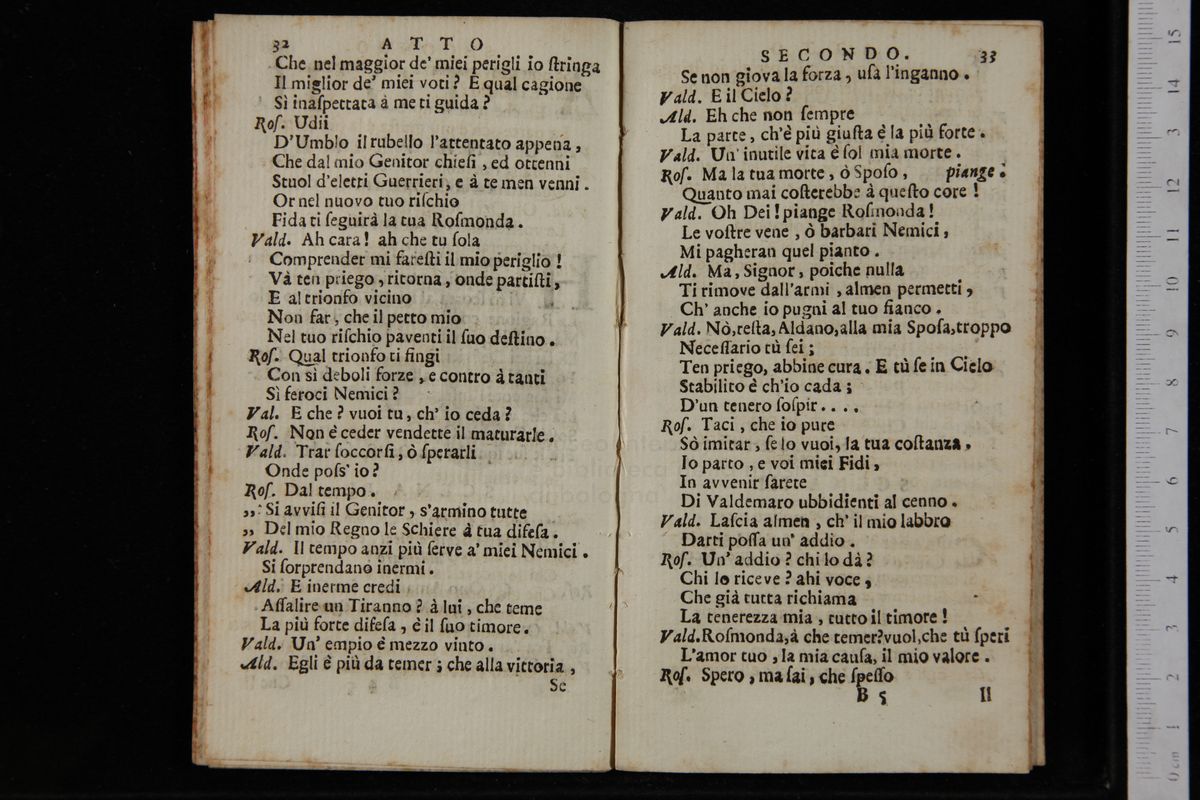 32 ATTO
Che nel maggior de' miei perigli io ſtringa
Il miglior de' miei voti? E qual cagione
Sì inaſpettata à me ti guida?
Roſ. Udii
D'Umblo il rubello l'attentato appena,
Che dal mio Genitor chieſi, ed ottenni
Stuol d'eletti Guerrieri, e à te men venni.
Or nel nuovo tuo riſchio
Fida ti ſeguirà la tua Roſmonda.
Vald. Ah cara! ah che tu ſola
Comprender mi fareſti il mio periglio!
Và ten priego, ritorna, onde partiſti,
E al trionfo vicino
Non far, che il petto mio
Nel tuo riſchio paventi il ſuo deſtino.
Roſ. Qual trionfo ti fingi
Con sì deboli forze, e contro à tanti
Sì feroci Nemici?
Val. E che? vuoi tu, ch' io ceda?
Roſ. Non è ceder vendette il maturarle.
Vald. Trar ſoccorſi, ò ſperarli
Onde poſs' io?
Roſ. Dal tempo.
„ Si avviſi il Genitor, s'armino tutte
„ Del mio Regno le Schiere à tua difeſa.
Vald. Il tempo anzi più ſerve a' miei Nemici.
Si ſorprendano inermi.
Ald. E inerme credi
Aſſalire un Tiranno? à lui, che teme
La più forte difeſa, è il ſuo timore.
Vald. Un' empio è mezzo vinto.
Ald. Egli è più da temer; che alla vittoria,
Se
SECONDO. 33
Se non giova la forza, uſa l'inganno.
Vald. E il Cielo?
Ald. Eh che non ſempre
La parte, ch'è più giuſta è la più forte.
Vald. Un' inutile vita è ſol mia morte.
Roſ. Ma la tua morte, ò Spoſo, piange.
Quanto mai coſterebbe à queſto core!
Vald. Oh Dei! piange Roſmonda!
Le voſtre vene, ò barbari Nemici,
Mi pagheran quel pianto.
Ald. Ma, Signor, poiche nulla
Ti rimove dall'armi, almen permetti,
Ch' anche io pugni al tuo fianco.
Vald. Nò, reſta, Aldano, alla mia Spoſa, troppo
Neceſſario tù ſei;
Ten priego, abbine cura. E tù ſe in Cielo
Stabilito è ch'io cada;
D'un tenero ſoſpir....
Roſ. Taci, che io pure
Sò imitar, ſe lo vuoi, la tua coſtanza.
Io parto, e voi miei Fidi,
In avvenir ſarete
Di Valdemaro ubbidienti al cenno.
Vald. Laſcia almen, ch' il mio labbro
Darti poſſa un' addio.
Roſ. Un' addio? chi lo dà?
Chi lo riceve? ahi voce,
Che già tutta richiama
La tenerezza mia, tutto il timore!
Vald. Roſmonda, à che temer? vuol, che tù ſperi
L'amor tuo, la mia cauſa, il mio valore.
Roſ. Spero, ma ſai, che ſpeſſo
B 5 Il
15
14
13
12
11
10
9
8
7
6
5
4
3
2
1
0 cm